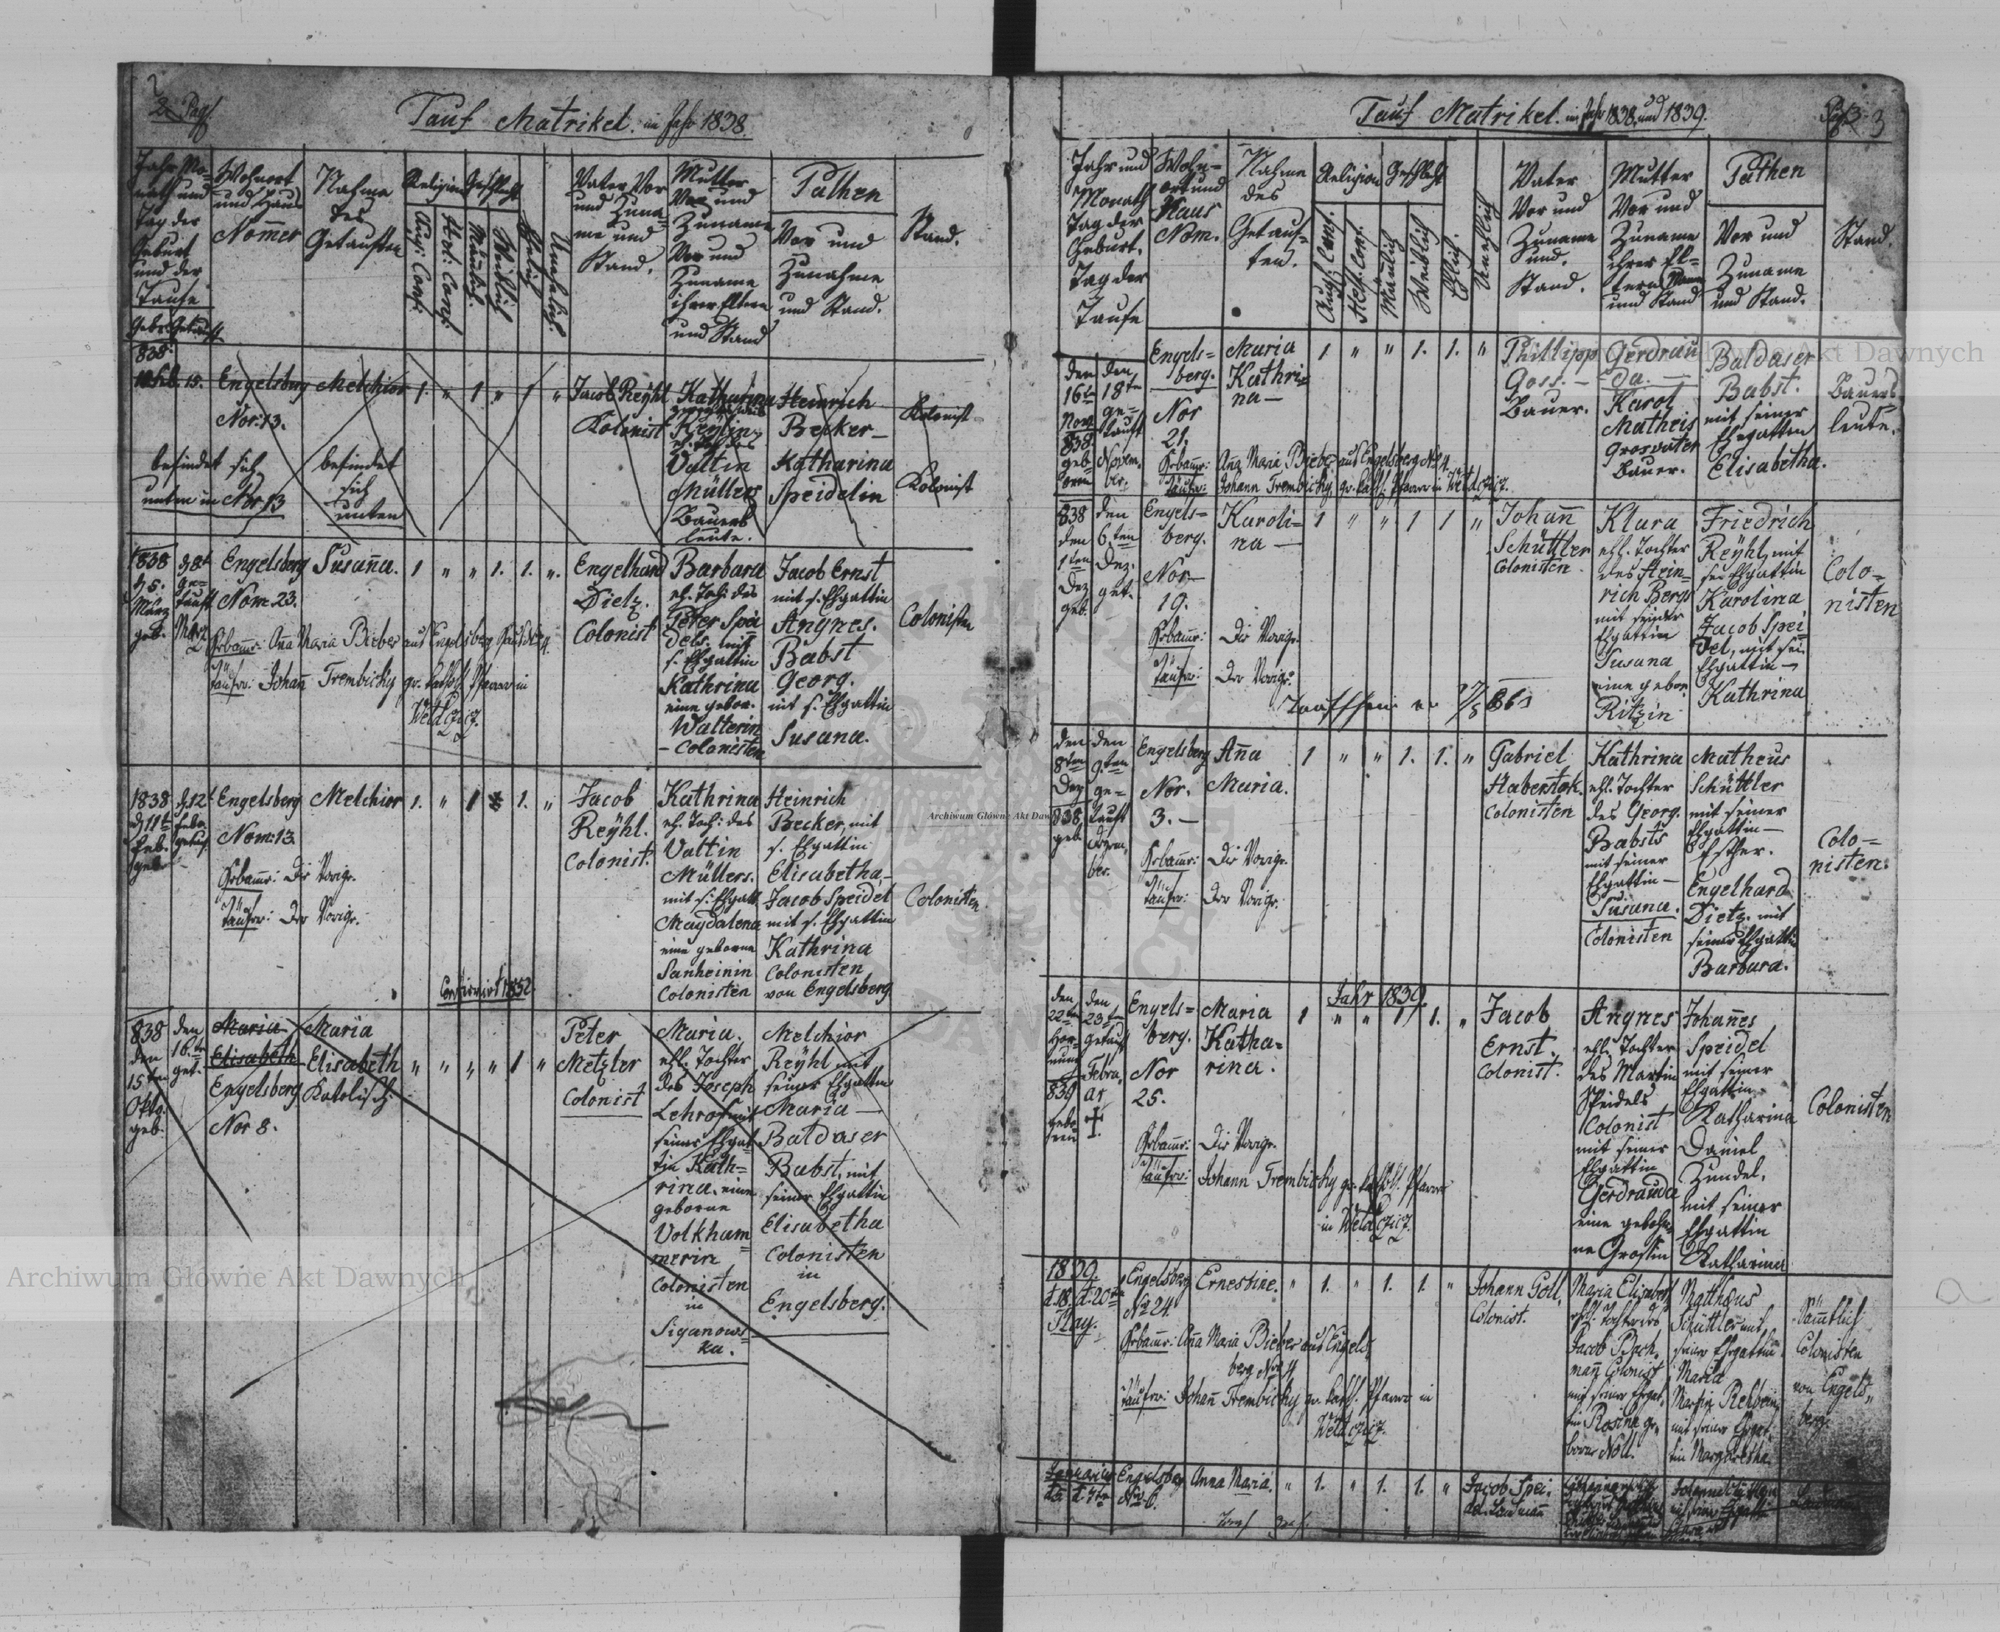 2
2 Pag.
Tauf Matrikel. im Jahr 1838.
Jahr Mo-
nath und
Tag der
Geburt
und der
Taufe
Geb. Getauft
Wohnort
und Haus
Nomer
Nahme
des
Getauften
Religion
Aug: Conf:
Hel: Conf:
Geschlecht
Mänlich
Weiblich
Ehelich
Unehelich
Vater Vor
und Zuna-
me und
Stand.
Mutter
Vor und
Zuname
Vor und
Zuname
ihrer Eltern
und Stand
Pathen
Vor und
Zunahme
und Stand.
Stand.
838.
15.
Engelsberg
Nor: 13.
Melchior
1. " 1 " 1 "
Jacob Reÿhl
Kolonist
Katharina
Valtin
Müllers
Bauers
leute.
Heinrich
Becker
Katharina
Speidelin
Kolonist
Kolonist
befindet sich
unten in Nor 13
befindet
sich
unten
1838
d. 5.
März
geb.
d. 8t
ge-
tauft
März
Engelsberg
Nom. 23.
Susana.
1 " " 1. 1. ".
Engelhard
Dietz.
Colonist
Barbara
eh. Toch: des
Peter Spei
dels mit
s. Ehgattin
Kathrina
eine gebor.
Walterin
- Colonisten
Jacob Ernst
mit s. Ehgattin
Angnes.
Babst
Georg.
mit s. Ehgattin
Susana.
Colonisten
Hebamr: Ana Maria Bieber aus Engelsberg
Täufer: Johan Trembicky gr. kathol. Pfarrer in
Weldzicz.
1838
d. 11t
Feb.
geb.
d. 12t
Feb.
getauf
Engelsberg
Nom: 13.
Melchior
1. " 1 1. "
Jacob
Reÿhl.
Colonist.
Kathrina
eh. Toch: des
Valtin
Müllers.
mit s. Ehgatt
Magdalena
eine geborne
Sanheinin
Colonisten
Heinrich
Becker, mit
s. Ehgattin
Elisabetha-
Jacob Speidel
mit s. Ehgattin
Kathrina
Colonisten
von Engelsberg
Colonisten
Hebamr: Die Vorige.
Täufer: Der Vorige.
Confirmirt 1852.
838
den
15ten
Oktg.
geb.
den
16.te
get.
Maria
Elisabeth
Engelsberg
Nor 8.
Maria
Elisabeth
Katolisch
" " " " 1 "
Peter
Metzler
Colonist
Maria.
ehl. Tochter
des Joseph
Lehrof mit
seiner Ehgat-
tin Kath-
rina. eine
geborne
Volkham-
merin
Colonisten
in
Siganows-
ka.
Melchior
Reÿhl mit
seiner Ehgattin
Maria
Baldaser
Babst, mit
seiner Ehgattin
Elisabetha
Colonisten
in
Engelsberg.
Tauf Matrikel. im Jahr 1838 und 1839.
Pag 3.
3
Jahr und
Monath
Tag der
Geburt.
Tag der
Taufe
Wohn-
ort und
Haus
Nom.
Nahme
des
Getauf-
ten.
Religion
Aug. Conf.
Helf. Conf.
Geschlecht
Mänlich
Weiblich
Ehlich
Unehlich
Vater
Vor und
Zuname
und.
Stand.
Mutter
Vor und
Zuname
ihrer El-
tern Name
und Stand
Pathen
Vor und
Zuname
und Stand.
Stand.
den
16te
Nov
838
geb-
oren
den
18ten
ge-
tauft
Novem-
ber.
Engels=
berg.
Nor
21.
Maria
Kathri-
na-
1 " " 1. 1. "
Phillipp
Goss. -
Bauer.
Gerdrau
da. -
Karol
Matheis
Grosvater
Bauer.
Baldaser
Babst.
mit seiner
Ehgatten
Elisabetha.
Bauers
leute.
Hebamr: Ana Maria Bieber aus Engelsberg Nr 4.
Täufer: Johann Trembicky gr. kath. Pfarrer in Weldzicz.
838
den
1ten
Dez
geb.
den
6.ten
Dez.
get.
Engels-
berg.
Nor-
19.
Karoli-
na -
1 " " 1 1 "
Johan
Schüttler
Colonisten.
Klara
ehl. Tochter
des Hein-
rich Bergs
mit seiner
Ehgattin
Susana
eine gebor.
Ritzin
Friedrich
Reÿhl, mit
sei Ehgattin
Karolina
Jacob Spei
del, mit sei.
Ehgattin -
Kathrina
Colo-
nisten
Hebamr: Die Vorige.
Täufer: Der Vorige.
den
8ten
Dez
838
geb
den
9.ten
ge-
tauft
Dezem,
ber.
Engelsberg
Nor.
3. -
Ana
Maria.
1 " " 1. 1. "
Gabriel
Haberstok
Colonisten
Kathrina
ehl. Tochter
des Georg.
Babsts
mit seiner
Ehgattin -
Susana.
Colonisten
Matheus
Schüttler
mit seiner
Ehgattin -
Esther.
Engelhard
Dietz. mit
seiner Ehgattin
Barbara.
Colo-
nisten.
Hebamr: Die Vorige.
Täufer: Der Vorige.
Jahr 1839.
den
22te
Hor-
nung
839
gebo
ren
den
23te
Getauft
Febru,
ar
Engels=
berg.
Nor
25.
Maria
Katha=
rina.
1 " " 1 1. "
Jacob
Ernst.
Colonist.
Angnes
ehl. Tochter
des Martin
Speidels
Colonist
mit seiner
Ehgattin
Gerdrauda
eine gebohr-
ne Grossin
Johañes
Speidel
mit seiner
Ehgattin
Katharina
Daniel
Zundel.
mit seiner
Ehgattin
Katharina
Colonisten
Hebamr: Die Vorige.
Täufer: Johann Trembicky gr. kathol. Pfarrer
in Weldzicz.
1839
d. 18.
May.
d. 20te
Engelsberg
Nr 24
Ernestine.
" 1. " 1. 1. "
Johann Goll,
Colonist.
Maria Elisabeth
ehl. Tochter des
Jacob Bach-
mañ Colonist
mit seiner Ehgat-
tin Rosina ge-
borne Noll.
Matthäus
Schüttler mit
seiner Ehgattin
Maria
Martin Rehbein,
mit seiner Ehgat-
tin Margaretha.
Sämtlich
Colonisten
von Engels-
berg.
Hebamr: Aña Maria Bieber aus Engels-
berg Nr 4
Täufer: Johañ Trembicky gr. kath. Pfarrer in
Weldzicz.
Januarius
Engelsberg
Nr 6.
Anna Maria.
" 1. " 1. 1. "
Jacob Spei-
del Landmañ
Archiwum Główne Akt Dawnych
Archiwum Główne Akt Dawnych
Archiwum Główne Akt Dawnych